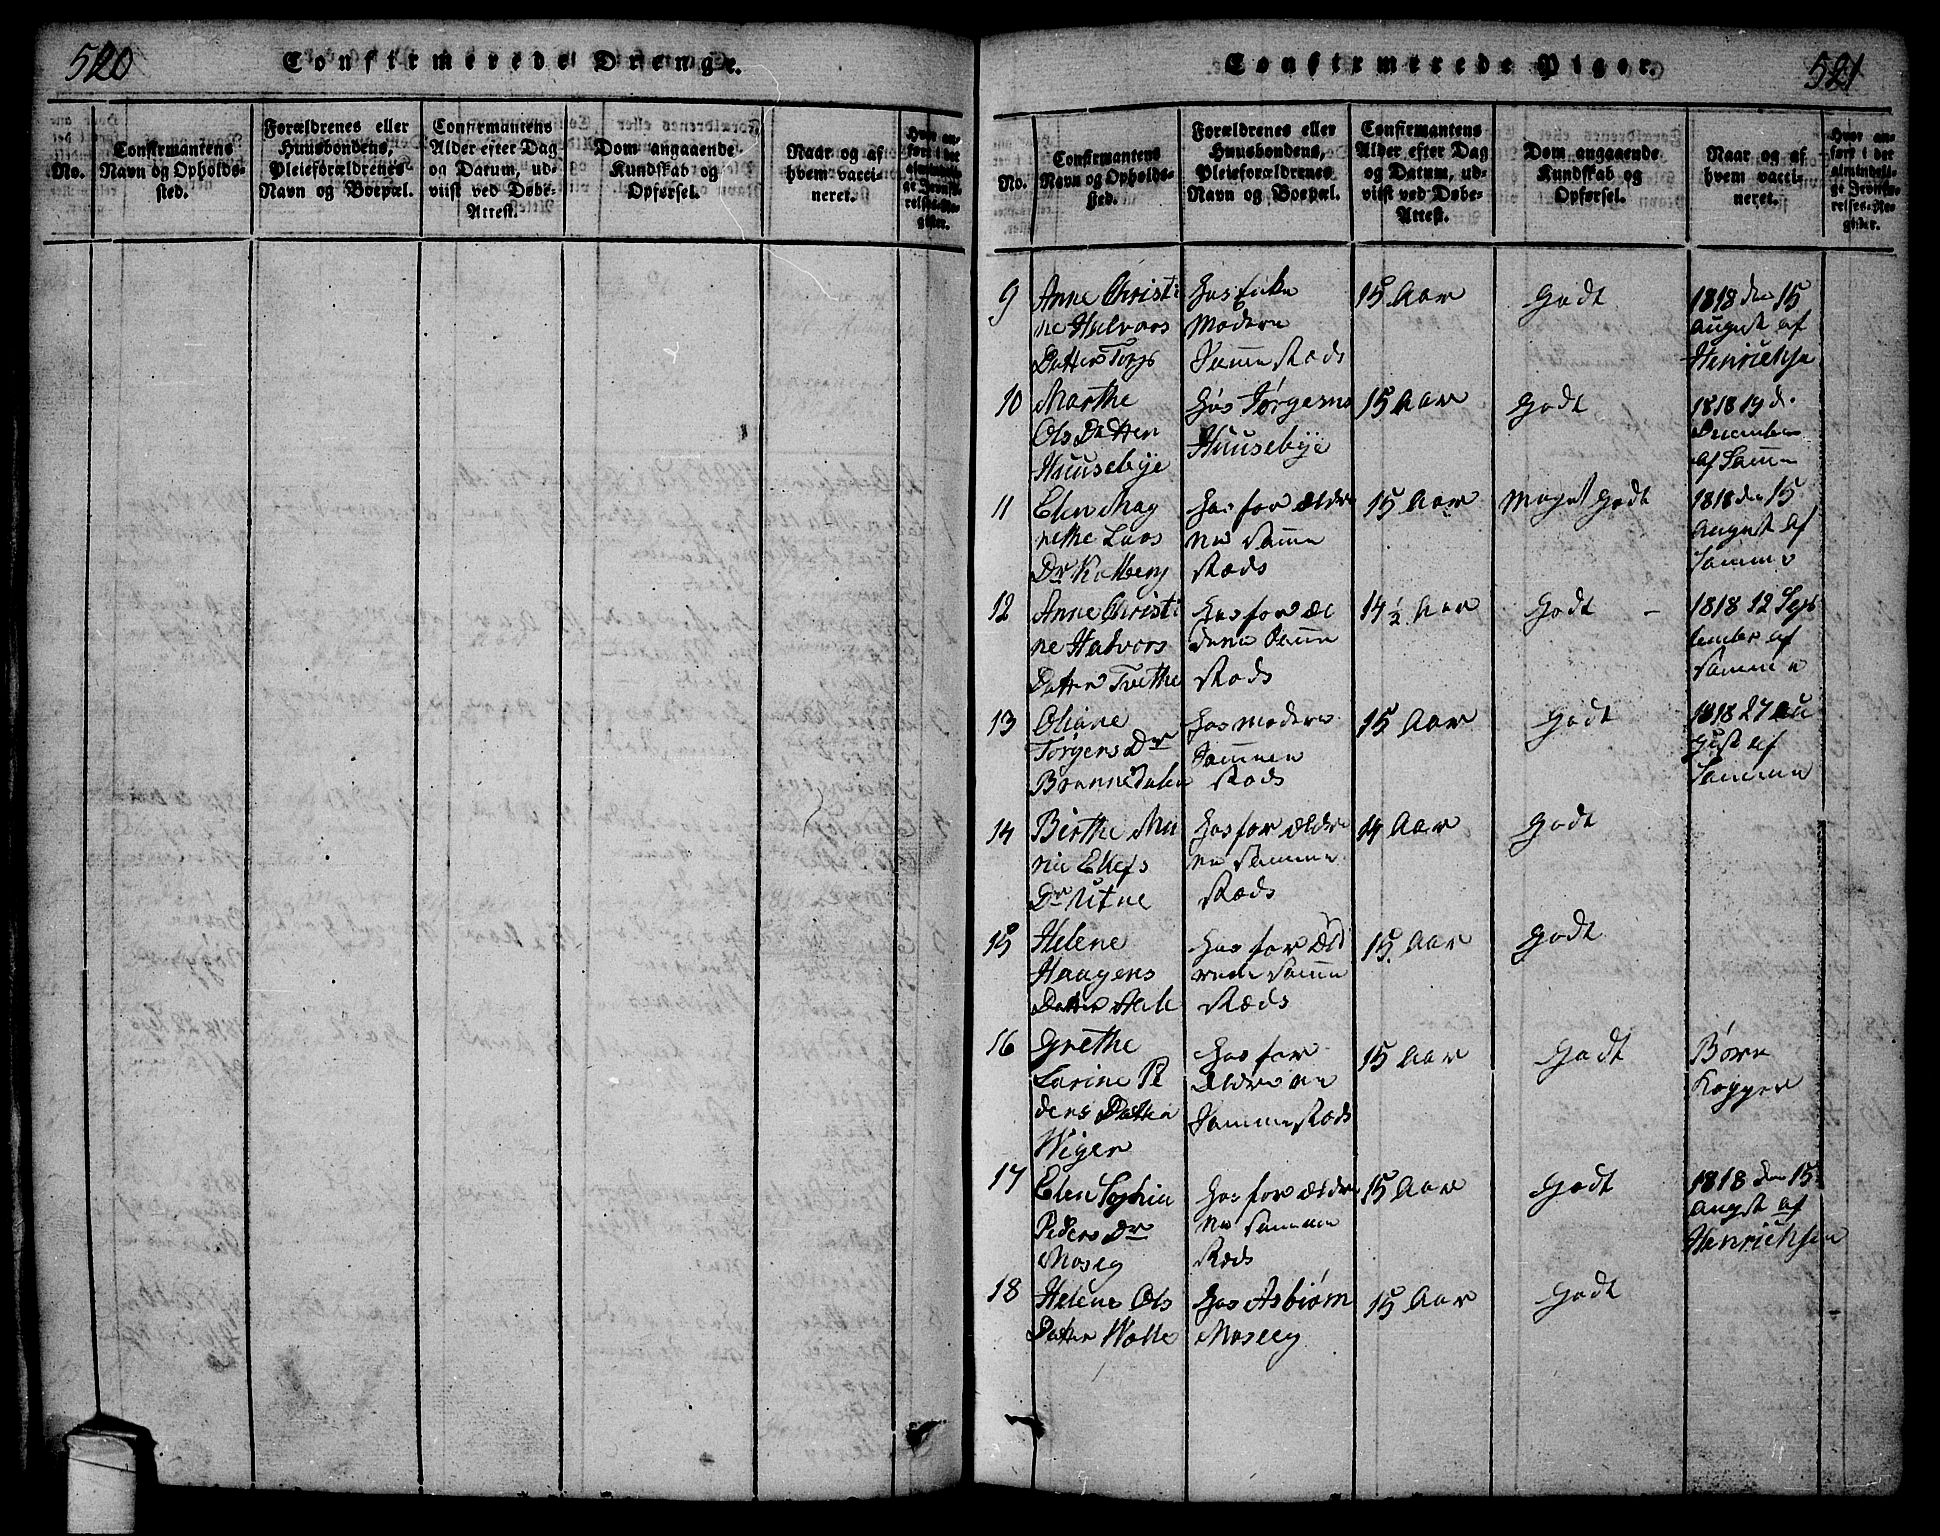 520
Confirmerede Drenge.
No.
Confirmantens
Navn og Opholds-
sted.
Forældrenes eller
Huusbondens,
Pleieforældrenes
Navn og Boepæl.
Confirmantens
Alder efter Dag
og Datum, ud-
viist ved Døbe-
Attest.
Dom angaaende
Kundskab og
Opførsel.
Naar og af
hvem vacci-
neret.
Hvor an-
ført i det
almindeli-
ge Jevnfø-
relses-Re-
gister.
Confirmerede Piger.
521
No.
Confirmantens
Navn og Opholds-
sted.
Forældrenes eller
Huusbondens,
Pleieforældrenes
Navn og Boepæl.
Confirmantens
Alder efter Dag
og Datum, ud-
viist ved Døbe-
Attest.
Dom angaaende
Kundskab og
Opførsel.
Naar og af
hvem vacci-
neret.
Hvor an-
ført i det
almindeli-
ge Jevnfø-
relses-Re-
gister.
9
Anne Christi
ne Halvors
Datter Torgs
hos Enke
Moderen
Samme Stæds
15 Aar
Godt
1818 den 15
august af
Henrichsen
10
Marthe
Ols Datter
Huusebye
hos
Huusebye
15 Aar
Godt
1818 19 d.
December
af Samme
11
Elen Mag
rethe Lars
Dr
hos forældre
ne Samme
Stæds
15 Aar
Meget Godt
1818 den 15
August af
Samme
12
Anne Christi
ne Halvors
Datter Tvethe
hos foræl
drene Samme
Stæds
14 1/2 Aar
Godt
1818 12 Sep
tember af
Samme
13
Oliane
Torgers Dr
hos Moderen
Sammen
Stæds
15 Aar
Godt
1818 27 Au
gust af
Samme
14
Birthe Ma
ria Ellefs
Dr Utne
hos forældre
ne Samme
Stæds
14 Aar
Godt
15
Helene
Haagens
Datter
hos foræld
rene Samme
Stæds
15 Aar
Godt
16
Grethe
Larine Pe
ders Datter
Wiger
hos for
ældrene
Samme Stæds
15 Aar
Godt
Børn
Kopper
17
Elen Sophia
Peders Dr
Moseg
hos forældre
ne Sammen
Stæds
15 Aar
Godt
1818 den 15
August af
Henrichsen
18
Helene Ols
Datter Wolle
hos Asbiørn
Moseeg
15 Aar
Godt